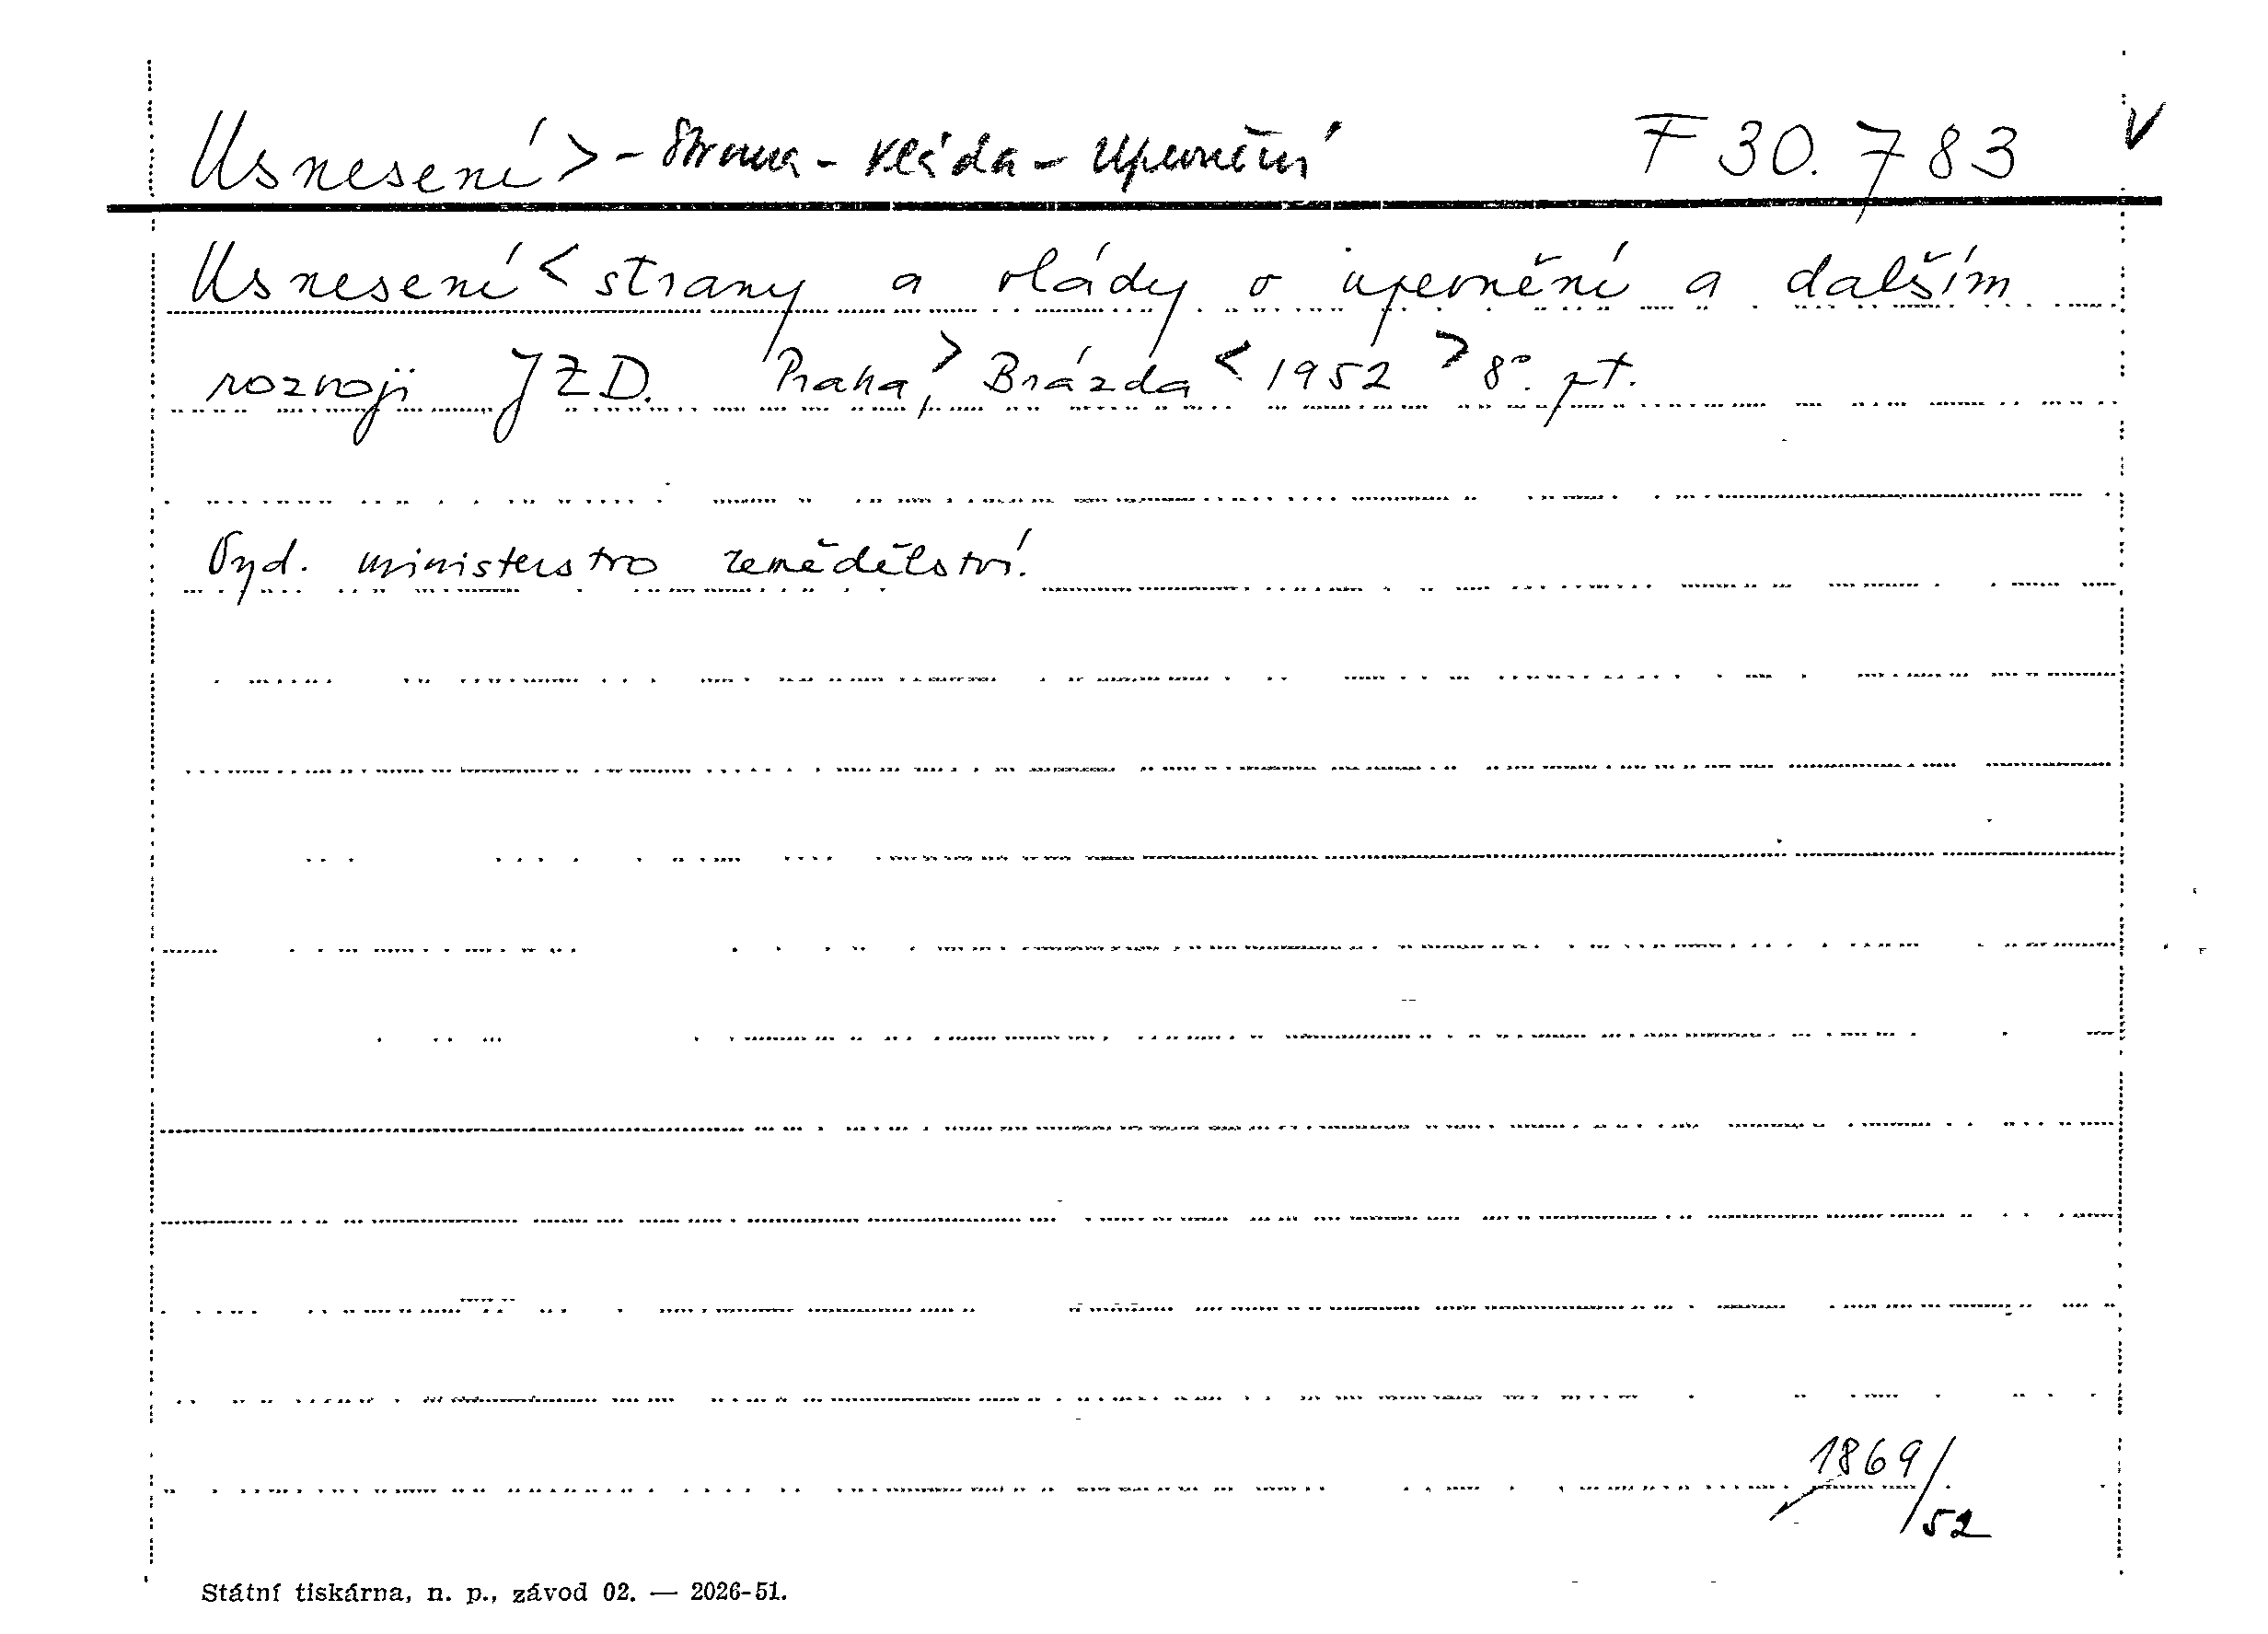 Usnesení > - strana - vláda - upevnění F 30.783 V
Usnesení < strany a vlády o upevnění a dalším
rozvoji JZD. Praha, > Brázda < 1952 > 8°. pt.
Vyd. ministerstvo zemědělství.
1869/52
Státní tiskárna, n. p., závod 02. — 2026-51.